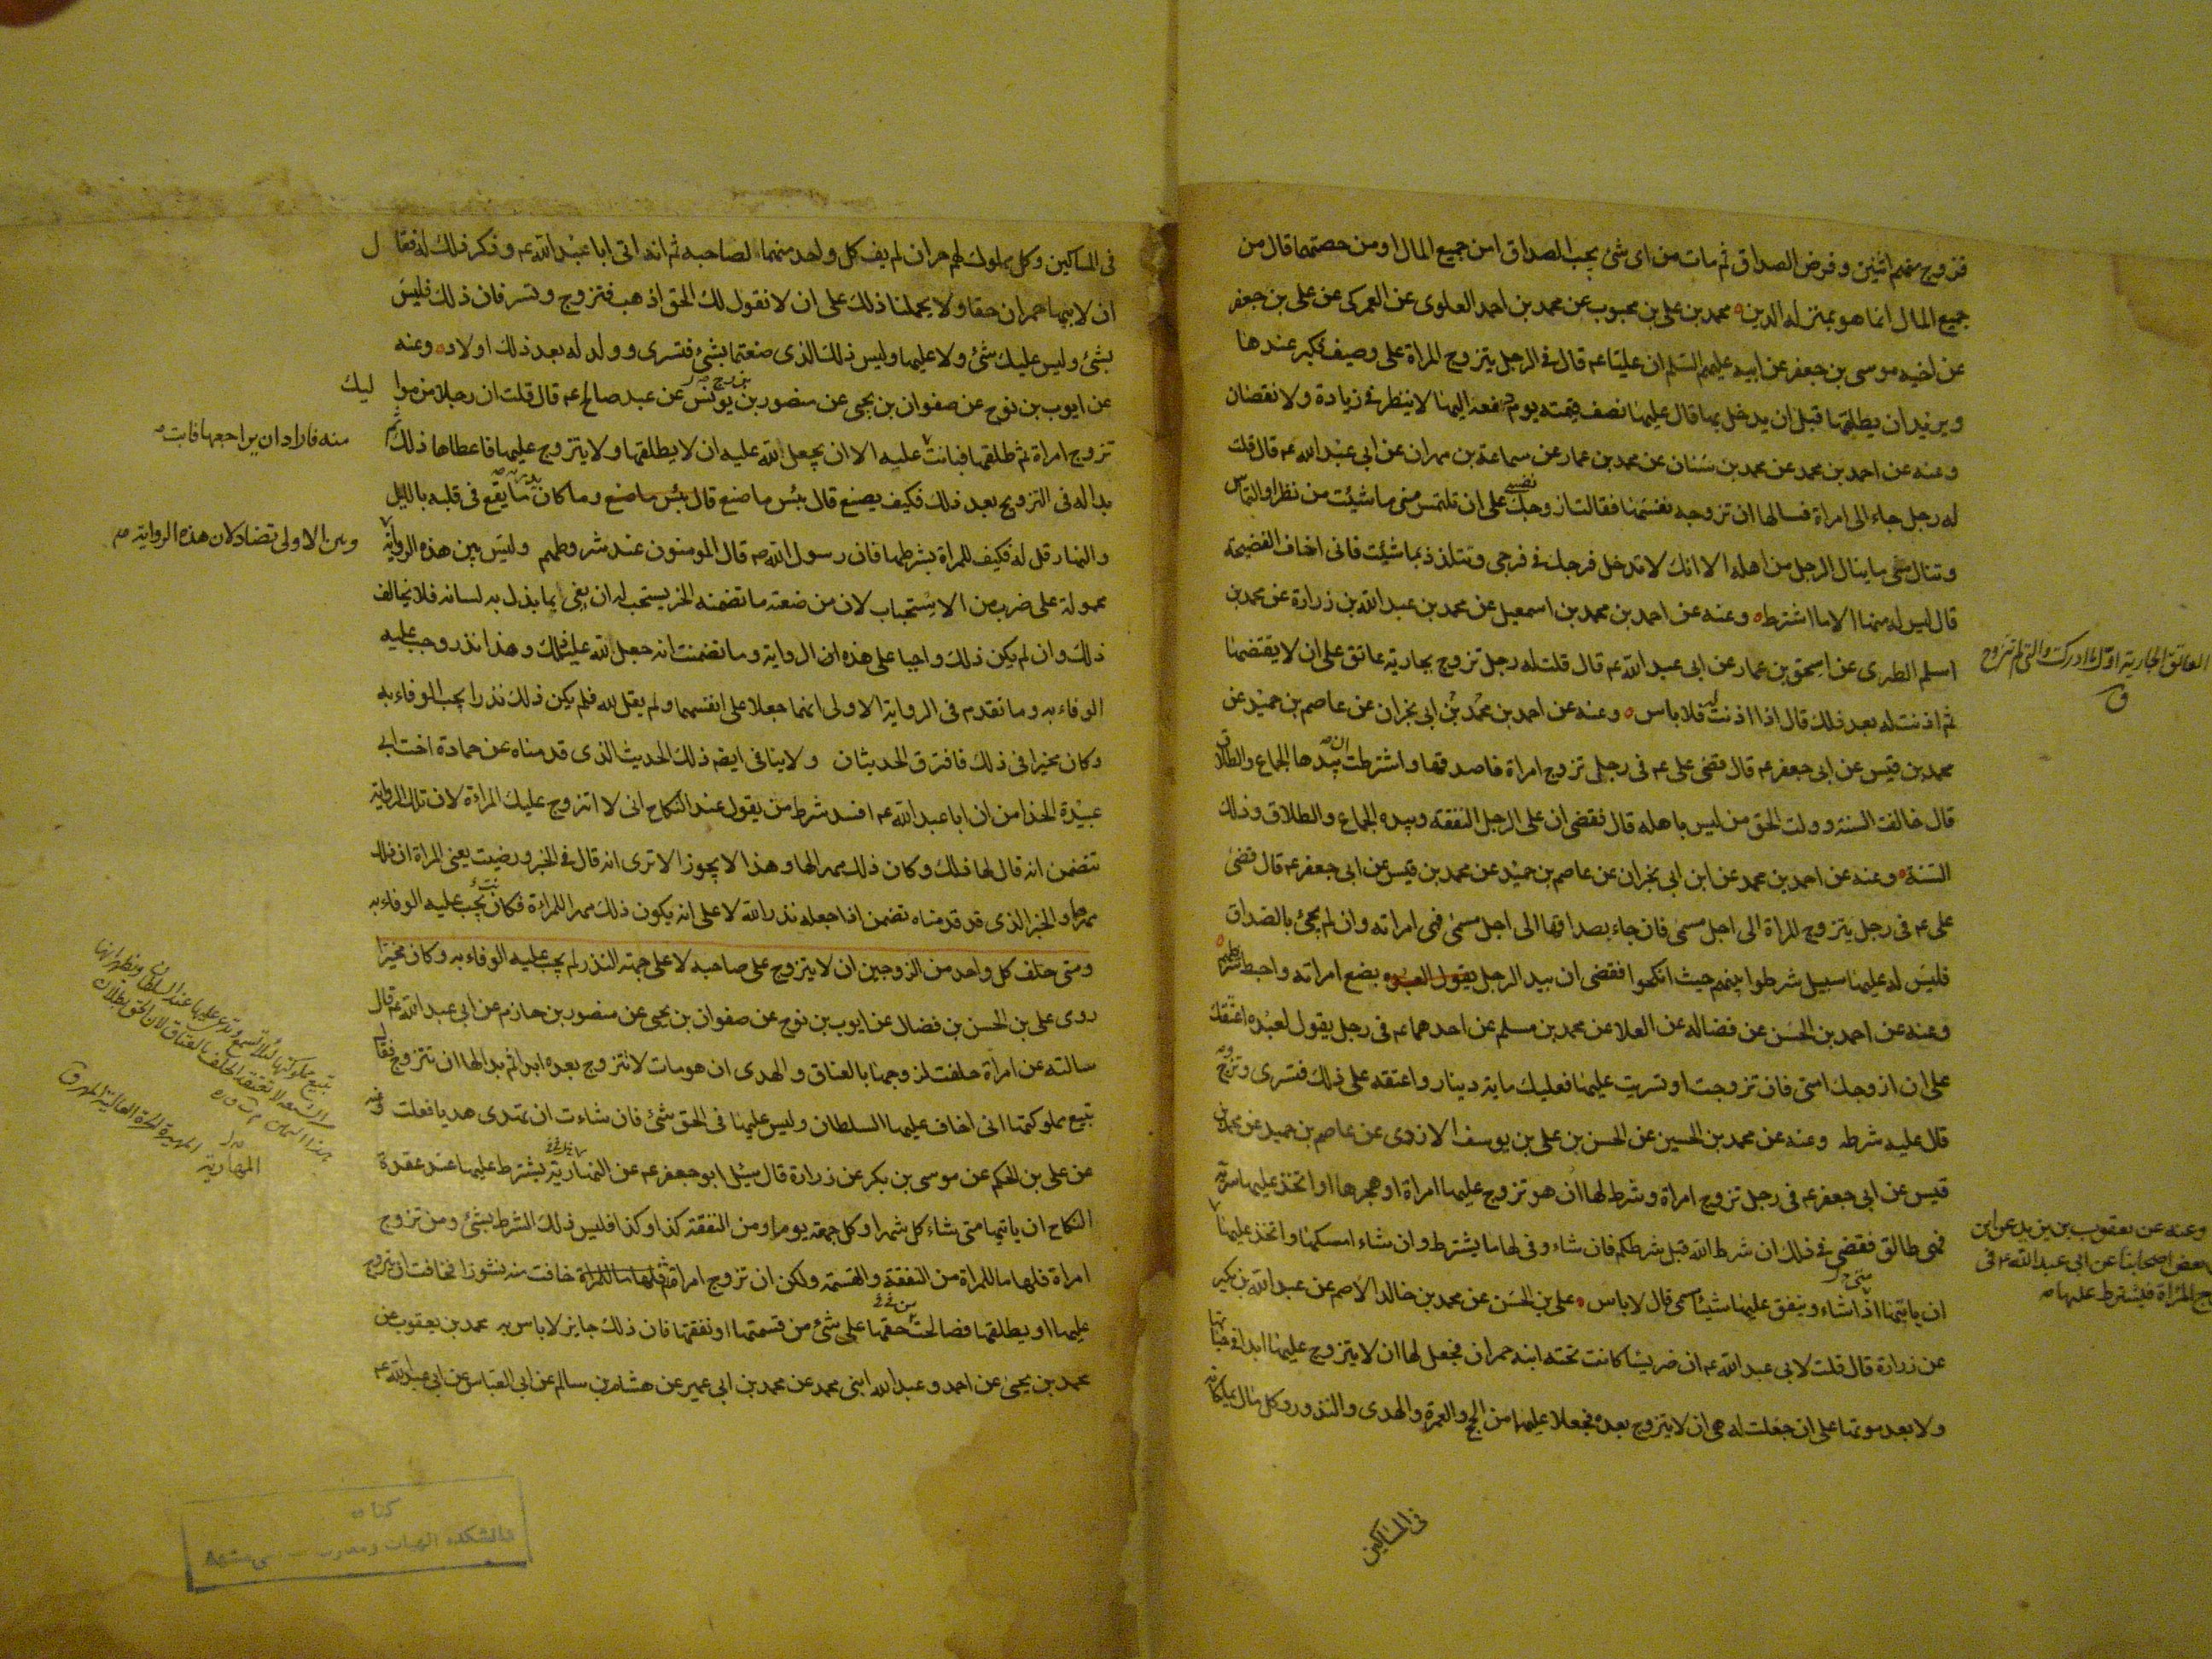 فزوج منهم اثنين وفرض الصداق ثم مات من اى شئ يجب الصداق امن جميع المال او من حصتهما قال من
جميع المال انما هو بمنزله الدين محمد بن على بن محبوب عن محمد بن احمد العلوى عن العمركى عن على بن جعفر
عن اخيه موسى بن جعفر عن ابيه عليهم السلم ان عليا عم قال فى الرجل يتزوج المراة على وصيف فكبر عندها
ويريد ان يطلقها قبل ان يدخل بها قال عليها نصف قيمته يوم دفعه اليها لا ينظر فى زيادة ولا نقصان
وعنه عن احمد بن محمد عن محمد بن سنان عن محمد بن عمار عن سماعة بن مهران عن ابى عبد الله عم قال قلت
له رجل جاء الى امراة فسالها ان تزوجه نفسها فقالت ازوجك نفسى على ان تلتمس منى ما شئت من نظر او التماس
وتنال منى ما ينال الرجل من اهله الا انك لا تدخل فرجك فى فرجى وتتلذذ بما شئت فانى اخاف الفضيحة
قال ليس له منها الا ما اشترط وعنه عن احمد بن محمد بن اسمعيل عن محمد بن عبد الله بن زرارة عن محمد بن
اسلم الطبرى عن اسحق بن عمار عن ابى عبد الله عم قال قلت له رجل تزوج بجارية عاتق على ان لا يقتضها
ثم اذنت له بعد ذلك قال اذا اذنت له فلا باس وعنه عن احمد بن محمد بن ابى نجران عن عاصم بن حميد عن
محمد بن قيس عن ابى جعفر عم قال قضى على عم فى رجل تزوج امراة فاصدقها واشترطت ان بيدها الجماع والطلاق
قال خالفت السنة وولت الحق من ليس باهله قال فقضى ان على الرجل النفقة وبيده الجماع والطلاق وذلك
السنة وعنه عن احمد بن محمد عن ابن ابى نجران عن عاصم بن حميد عن محمد بن قيس عن ابى جعفر عم قال قضى
على عم فى رجل يتزوج المراة الى اجل مسمى فان جاء بصداقها الى اجل مسمى فهى امراته وان لم يجئ بالصداق
فليس له عليها سبيل شرطوا بينهم حيث انكحوا فقضى ان بيد الرجل يقول لعبده بضع امراته واحبط شرطهم
وعنه عن احمد بن الحسن عن فضاله عن العلا عن محمد بن مسلم عن احدهما عم فى رجل يقول لعبده اعتقك
على ان ازوجك امتى فان تزوجت او تسريت عليها فعليك ماية دينار واعتقه على ذلك فتسرى وتزوج
قال عليه شرطه وعنه عن محمد بن الحسين عن الحسن بن على بن يوسف الازدى عن عاصم بن حميد عن محمد بن
قيس عن ابى جعفر عم فى رجل تزوج امراة وشرط لها ان هو تزوج عليها امراة او هجرها او اتخذ عليها سرية
فهى طالق فقضى فى ذلك ان شرط الله قبل شرطكم فان شاء وفى لها ما يشترط وان شاء امسكها واتخذ عليها
ان ياتيها اذا شاء وينفق عليها شيئا مسمى قال لا باس على بن الحسن عن محمد بن خالد الاصم عن عبد الله بن بكير
عن زرارة قال قلت لابى عبد الله عم ان ضريسا كانت تحته ابنه حمران فجعل لها ان لا يتزوج عليها ابدا فى حياتها
ولا بعد موتها على ان جعلت له هى ان لا يتزوج بعده فجعلا عليهما من الحج والعمرة والهدى والنذور وكل مال يملكانه
فى المساكين
العاتق الجارية اول ما ادركت والتى لم تزوج
ق
وعنه عن يعقوب بن يزيد عن ابن
بعض اصحابنا عن ابى عبد الله عم فى
المراة فيشترط عليها
فى المساكين وكل مملوك لهم حر ان لم يف كل واحد منهما لصاحبه ثم انه اتى ابا عبد الله عم وذكر ذلك له فقال
ان لابيها حمران حقا ولا يحملنا ذلك على ان لا نقول لك الحق اذهب فتزوج وتسر فان ذلك فليس
بشئ وليس عليك شئ ولا عليها وليس ذلك الذى صنعتما بشئ فتسرى وولد له بعد ذلك اولاد وعنه
عن ايوب بن نوح عن صفوان بن يحيى عن منصور بن يونس عن عبد صالح عم قال قلت ان رجلا من مواليك
تزوج امراة ثم طلقها فبانت منه فاراد ان يراجعها فابت عليه الا ان يجعل لله عليه ان لا يطلقها ولا يتزوج عليها فاعطاها ذلك ثم
بدا له فى التزويج بعد ذلك فكيف يصنع قال بئس ما صنع قال بئس ما صنع وما كان يدريه ما يقع فى قلبه بالليل
والنهار قل له فكيف للمراة بشرطها فان رسول الله ص قال المومنون عند شروطهم وليس بين هذه الرواية
وبين الاولى تضاد لان هذه الرواية
محمولة على ضرب من الاستحباب لان من صنعته ما تضمنه الخبر يستحب له ان يفى بما بذل به لسانه فلا يخالف
ذلك وان لم يكن ذلك واجبا على هذه ان الرواية وما تضمنت انه جعل لله عليه ذلك وهذا نذر وجب عليه
الوفاء به وما تقدم فى الرواية الاولى انهما جعلا على انفسهما ولم يقل لله فلم يكن ذلك نذرا يجب الوفاء به
وكان مخيرا فى ذلك فافترق الحديثان ولا ينافى ايضا ذلك الحديث الذى قدمناه عن حمادة اخت ابى
عبيدة الحذا من ان ابا عبد الله عم افسد شرط من يقول عند النكاح انى لا اتزوج عليك المراة لان تلك الرواية
تتضمن انه قال لها ذلك وكان ذلك مهرا لها وهذا لا يجوز الا ترى انه قال فى الخبر ورضيت يعنى المراة ان ذلك
مهرها والخبر الذى قد قدمناه تضمن اذا جعله نذرا لله لا على انه يكون ذلك مهرا للمراة فكان يجب عليه الوفاء به
ومتى حلف كل واحد من الزوجين ان لا يتزوج على صاحبه لا على جهة النذر لم يجب عليه الوفاء به وكان مخيرا
روى على بن الحسن بن فضال عن ايوب بن نوح عن صفوان بن يحيى عن منصور بن حازم عن ابى عبد الله عم قال
سالته عن امراة حلفت لزوجها بالعتاق والهدى ان هو مات لا تتزوج بعده ابدا ثم بدا لها ان تتزوج فقال
تبيع مملوكتها انى اخاف عليها السلطان وليس عليها فى الحق شئ فان شاءت ان تهدى هديا فعلت وعنه
عن على بن الحكم عن موسى بن بكر عن زرارة قال سئل ابو جعفر عم عن النهارية يشترط عليها عند عقدة
النكاح ان ياتيها متى شاء كل شهر او كل جمعة يوما ومن النفقة كذا وكذا فليس ذلك الشرط بشئ ومن تزوج
امراة فلها ما للمراة من النفقة والقسمة ولكن ان تزوج امراة فلها ما للمراة خافت منه نشوزا فخافت ان يتزوج
عليها او يطلقها فصالحت من حقها على شئ من قسمتها او نفقتها فان ذلك جايز لا باس به محمد بن يعقوب عن
محمد بن يحيى عن احمد وعبد الله ابنى محمد عن محمد بن ابى عمير عن هشام بن سالم عن ابى العباس عن ابى عبد الله عم
المهارية
كتا
دانشكده الهيات ومعارف